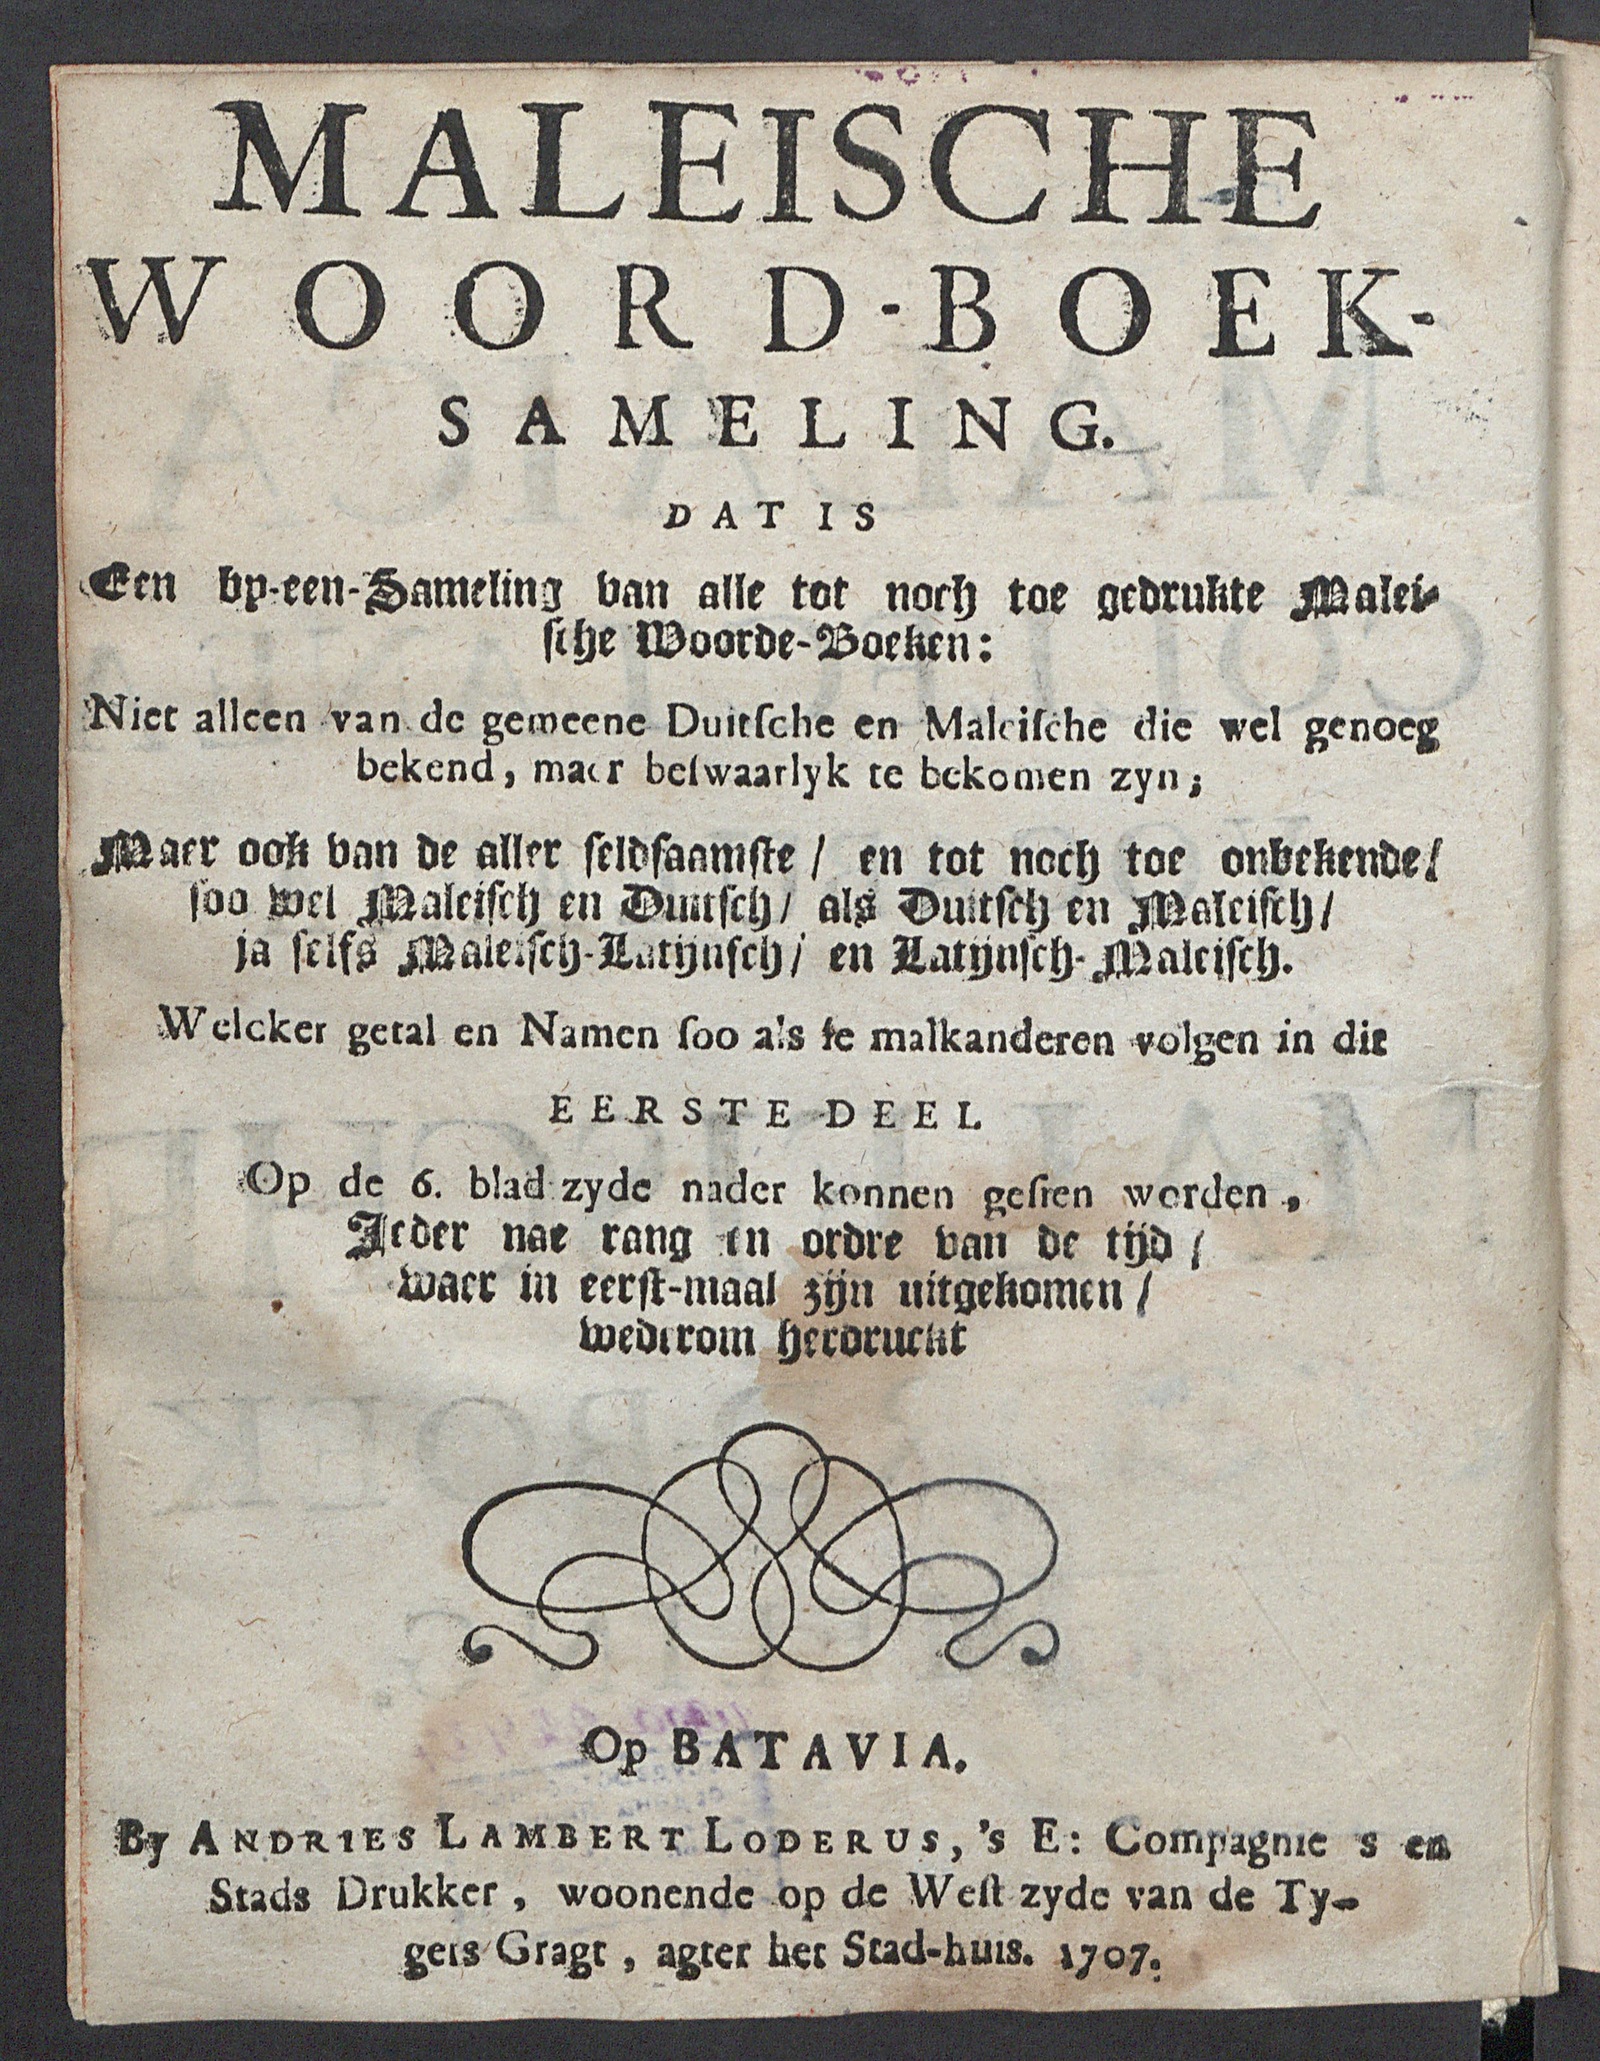 MALEISCHE
WOORD-BOEK-
SAMELING.
DAT IS
Een by-een-Sameling van alle tot noch toe gedrukte Malei-
sche Woorde-Boeken:
Niet alleen van de gemeene Duitſche en Maleiſche die wel genoeg
bekend, maer beſwaarlyk te bekomen zyn;
Maer ook van de aller ſeldſaamſte / en tot noch toe onbekende /
ſoo wel Maleiſch en Duitſch / als Duitſch en Maleiſch /
ja ſelfs Maleiſch-Latijnſch / en Latijnſch-Maleiſch.
Welcker getal en Namen ſoo als ſe malkanderen volgen in dit
EERSTE DEEL
Op de 6. blad zyde nader konnen geſien worden,
Jeder nae rang en ordre van de tijd /
waer in eerſt-maal zijn uitgekomen /
wederom herdruckt
Op BATAVIA.
By ANDRIES LAMBERT LODERUS, 's E: Compagnie s en
Stads Drukker, woonende op de Weſt zyde van de Ty-
gers Gragt, agter het Stad-huis. 1707.